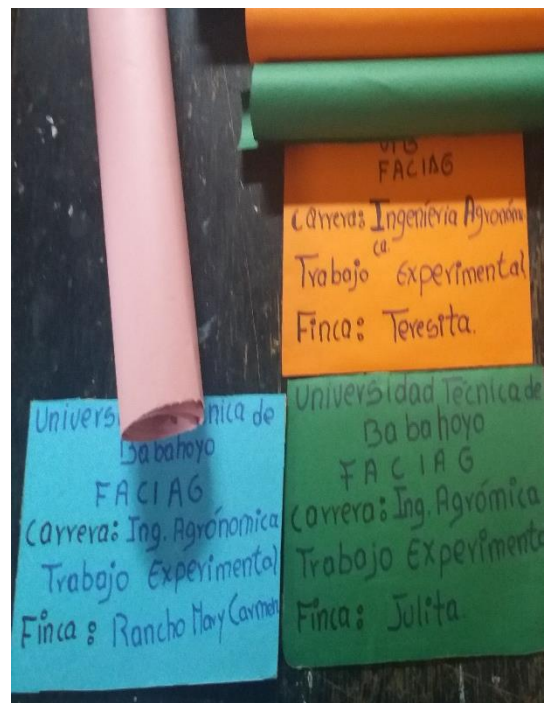 UTB
FACIAG
Carrera: Ingenieria Agronómi
ca.
Trabajo Experimental
Finca: Teresita.
Univers nica de
Babahoyo
FACIAG
Carrera: Ing. Agrónomica
Trabajo Experimental
Finca: Rancho Mary Carmen
Universidad Técnica de
Babahoyo
FACIAG
Carrera: Ing. Agrómica
Trabajo Experimento
Finca: Julita.